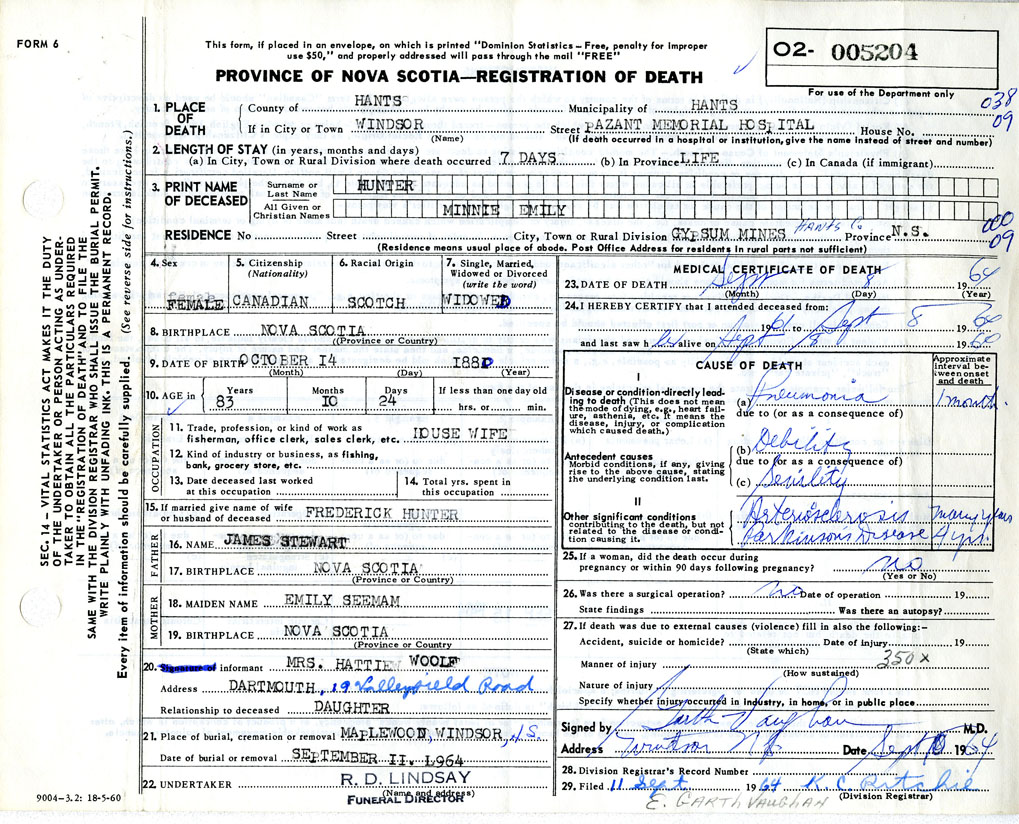 FORM 6
This form, if placed in an envelope, on which is printed "Dominion Statistics – Free, penalty for improper
use $50," and properly addressed will pass through the mail "FREE"
O2- 005204
For use of the Department only
PROVINCE OF NOVA SCOTIA—REGISTRATION OF DEATH
038
09
1. PLACE OF DEATH
County of HANTS Municipality of HANTS
If in City or Town WINDSOR Street PAZANT MEMORIAL HOSPITAL House No.
(Name) (If death occurred in a hospital or institution, give the name instead of street and number)
2. LENGTH OF STAY (in years, months and days)
(a) In City, Town or Rural Division where death occurred 7 DAYS (b) In Province LIFE (c) In Canada (if immigrant)
3. PRINT NAME OF DECEASED
Surname or Last Name HUNTER
All Given or Christian Names MINNIE EMILY
RESIDENCE No Street City, Town or Rural Division GYPSUM MINES Hants Co Province N.S.
000
09
(Residence means usual place of abode. Post Office Address for residents in rural parts not sufficient)
4. Sex female FEMALE
5. Citizenship (Nationality) CANADIAN
6. Racial Origin SCOTCH
7. Single, Married, Widowed or Divorced (write the word) WIDOWED
8. BIRTHPLACE NOVA SCOTIA
((Province or Country)
9. DATE OF BIRTH OCTOBER I4 I88
(Month) (Day) (Year)
10. AGE in Years 83 Months IO Days 24 If less than one day old hrs. or min.
OCCUPATION
11. Trade, profession, or kind of work as fisherman, office clerk, sales clerk, etc. HOUSE WIFE
12. Kind of industry or business, as fishing, bank, grocery store, etc.
13. Date deceased last worked at this occupation
14. Total yrs. spent in this occupation
15. If married give name of wife or husband of deceased FREDERICK HUNTER
FATHER
16. NAME JAMES STEWART
17. BIRTHPLACE NOVA SCOTIA
(Province or Country)
MOTHER
18. MAIDEN NAME EMILY SEEMAM
19. BIRTHPLACE NOVA SCOTIA
(Province or Country
20. Signature of informant MRS. HATTIE WOOLF
Address DARTMOUTH, 19 Valleyfield Road
Relationship to deceased DAUGHTER
21. Place of burial, cremation or removal MAPLEWOOD, WINDSOR, N.S.
Date of burial or removal SEPTEMBER II. L964
22. UNDERTAKER R. D. LINDSAY
(Name and address)
FUNERAL DIRECTOR
MEDICAL CERTIFICATE OF DEATH
23. DATE OF DEATH Sept 8 1964
(Month) (Day) (Year)
24. I HEREBY CERTIFY that I attended deceased from:
1961 to Sept 8 1964
and last saw h er alive on Sept 8 1964
CAUSE OF DEATH
Approximate interval between onset and death
I
Disease or condition directly leading to death (This does not mean the mode of dying, e.g., heart failure, asthenia, etc. It means the disease, injury, or complication which caused death.)
(a) Pneumonia 1 month.
due to (or as a consequence of)
Antecedent causes
Morbid conditions, if any, giving rise to the above cause, stating the underlying condition last.
(b) Debility
due to (or as a consequence of)
(c) Senility
II
Other significant conditions
contributing to the death, but not related to the disease or condition causing it.
Arteriosclerosis many years
Parkinsons Disease 4 yrs.
25. If a woman, did the death occur during pregnancy or within 90 days following pregnancy? no
(Yes or No)
26. Was there a surgical operation? no Date of operation 19
State findings Was there an autopsy?
27. If death was due to external causes (violence) fill in also the following:–
Accident, suicide or homicide? Date of injury 19
(State which)
Manner of injury 350 x
(How sustained)
Nature of injury
Specify whether injury occurred in Industry, in home, or in public place
Signed by Garth Vaughan M.D.
Address Windsor NS Date Sept 1964
28. Division Registrar's Record Number
29. Filed 11 Sept 1964 K. C. Ritchie
(Division Registrar)
E. GARTH VAUGHAN
SEC. 14 – VITAL STATISTICS ACT MAKES IT THE DUTY
OF THE UNDERTAKER OR PERSON ACTING AS UNDER-
TAKER TO OBTAIN ALL THE PARTICULARS REQUIRED
IN THE "REGISTRATION OF DEATH" AND TO FILE THE
SAME WITH THE DIVISION REGISTRAR WHO SHALL ISSUE THE BURIAL PERMIT.
WRITE PLAINLY WITH UNFADING INK. THIS IS A PERMANENT RECORD.
Every item of information should be carefully supplied. (See reverse side for instructions.)
9004-3.2: 18-5-60